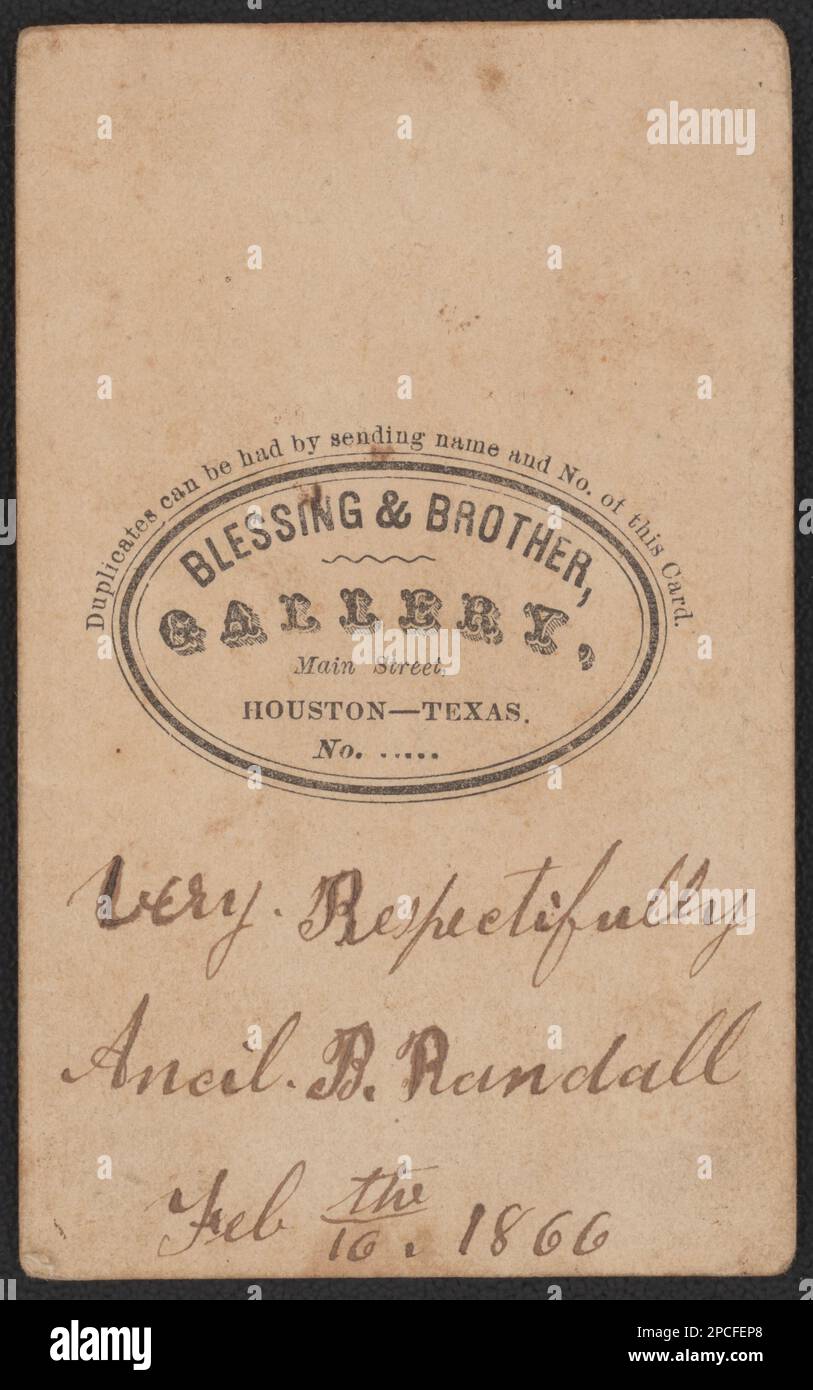 Duplicates can be had by sending name and No. of this Card.
BLESSING & BROTHER,
GALLERY,
Main Street,
HOUSTON—TEXAS.
No. .....
Very. Respectifully
Ancil. B. Randall
Feb the/16. 1866
alamy
Image ID: 2PCFEP8
www.alamy.com